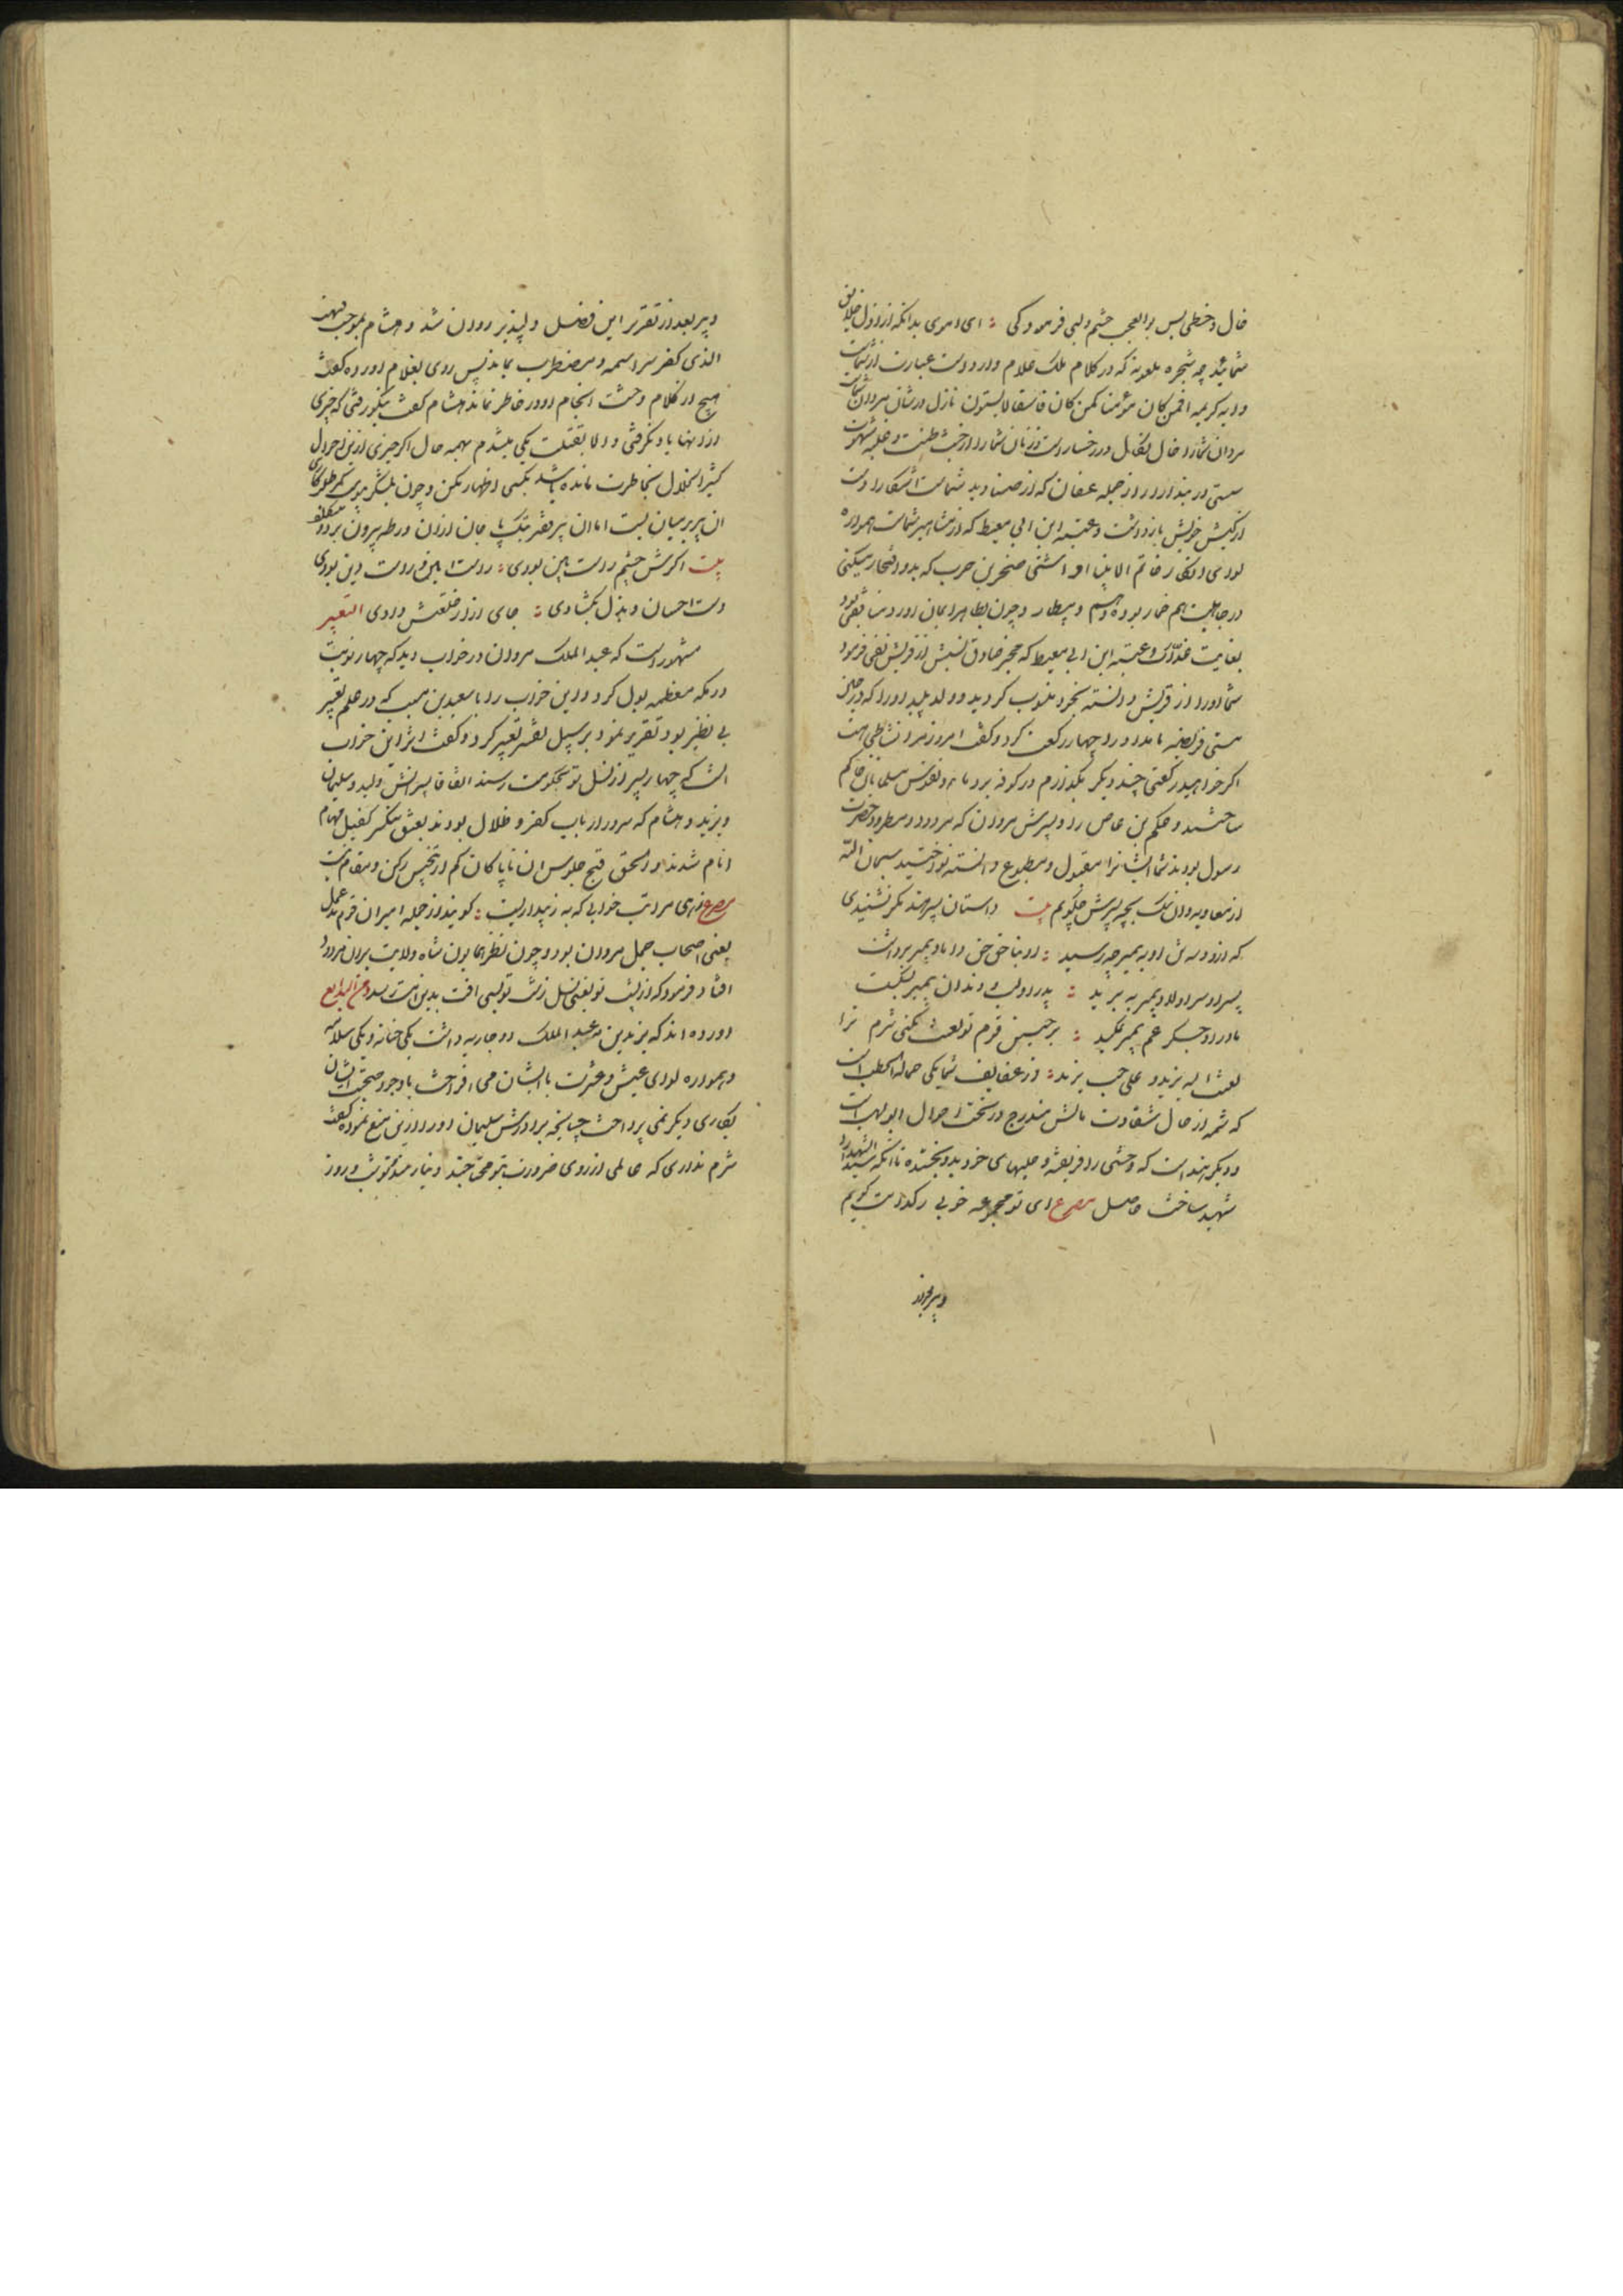 خال و خطی بس بوالعجب چشم و لبی فرمودکی : ای اموی بدانکه ارذل خلایق
شمائید چه شجره ملعونه که در کلام ملک علام وارد است عبارت از شماست
و آیه کریمه افمن کان مؤمنا کمن کان فاسقا لا یستون نازل در شان
مردان شما را خال بطال در رخسار است و زنان شما را از خبث طینت و غلبه شهوت
سستی در بند ازار از جمله عفان که از صنادید شماست آشکارا دست
از کیش خویش بازداشت و عتبه ابن ابی معیط که از مشاهیر شماست همواره
لوای انکار خاتم الانبیا افراشتی صخر بن حرب که بدو افتخار میکنی
در جاهلیت هم خمار بوده و هم و بیطار و چون بظاهر ایمان آورد منافق بود
بغایت غدار و عتبه ابن ابی معیط که مخبر صادق نسبش از قریش نفی فرمود
شما او را از قریش دانسته بخود منسوب کردید و ولد پلید او را که در حال
مستی فریضه بامداد را چهار رکعت کرد و گفت امروز مرا نشاطی هست
اگر خواهید رکعتی چند دیگر بگذارم در کوفه بر دماء و نفوس مسلمانان حاکم
ساختید و حکم بن عاص را و پسرش مروان که مردود و مطرود حضرت
رسول بودند شما ایشانرا مقبول و مطبوع دانسته نواختید سبحان الله
از معاویه و ان سگ بچه پسرش چگویم بیت داستان پسر هند مگر نشنیدی
که ازو و سه کس او به پیمبر چه رسید : او بناحق حق داماد پیمبر برداشت
پسر او سر اولاد پیمبر ببرید : پدر او لب و دندان پیمبر بشکست
مادر او جگر عم پیمبر بمکید : بر چنین قوم تو لعنت نکنی شرم ترا
لعنة الله یزید و علی حب یزید : و از عفایف شما یکی حمالة الحطب است
که شمه از حال شقاوت مالش مندرج در تحت احوال ابولهب است
و دیگر هند است که وحشی را فریفته و حلیهای خود بدو بخشیده تا آنکه سید الشهدا را
شهید ساخت حاصل مصرع ای تو مجموعه خوبی ز کدامت گویم
و پیر بعد از
و پیر بعد از تقریر این فصل دلپذیر روان شد و هشام بموجب فبهت
الذی کفر سراسیمه و مضطرب بماند پس روی بغلام آورده گفت
هیچ از کلام وحشت انجام او در خاطر نماند هشام گفت نیکو رفتی که چیزی
از اینها یاد نگرفتی و الا بقتلت یکی میشدم بهمه حال اگر چیزی ازین احوال
کثیر اختلال بخاطرت مانده باشد بکسی اظهار مکن و چون بلشکر پیوست کمر طلبکاری
ان پیر بر میان بست اما ان پیر فقیر بتک پا جان از ان ورطه بیرون برد
بیت اگرش چشم راست بین بودی : راست بین و راست دین بودی
دست احسان و بذل بگشادی : جای ازار خلعتش دادی التعبیر
مشهور است که عبدالملک مروان در خواب دید که چهار نوبت
در مکه معظمه بول کرد و این خواب را با سعید بن مسیب که در علم تعبیر
بی نظیر بود تقریر نمود بر سبیل تفسیر تعبیر کرد و گفت اثر این خواب
انست که چهار پسر از نسل تو بحکومت رسند اتفاقا پسرانش ولید و سلیمان
و یزید و هشام که سرور ارباب کفر و ضلال بودند بعشق متکسر کفیل مهام
انام شدند و الحق قبح جلوس ان ناپاکان کم از تنجیس رکن و مقام نیست
مصرع زهی مراتب خوابی که به ز بیداریست : گویند از جمله اسیران قوم جمل
یعنی اصحاب جمل مروان بود و چون نظر همایون شاه ولایت بران مردود
افتاد فرمود که از تو یعنی نسل زشت تو بسی آفت بدین امت رسد و من البدایع
آورده اند که یزید بن عبدالملک دو جاریه داشت یکی حبابه و یکی سلامه
و همواره لوای عیش و عشرت با ایشان می افراخت با وجود صحبت ایشان
بکاری دیگر نمی پرداخت چنانچه برادرش سلیمان او را ازین منع نموده گفت
شرم نداری که عالمی از روی ضرورت بتو محتاجند و نیازمند تو شب و روز